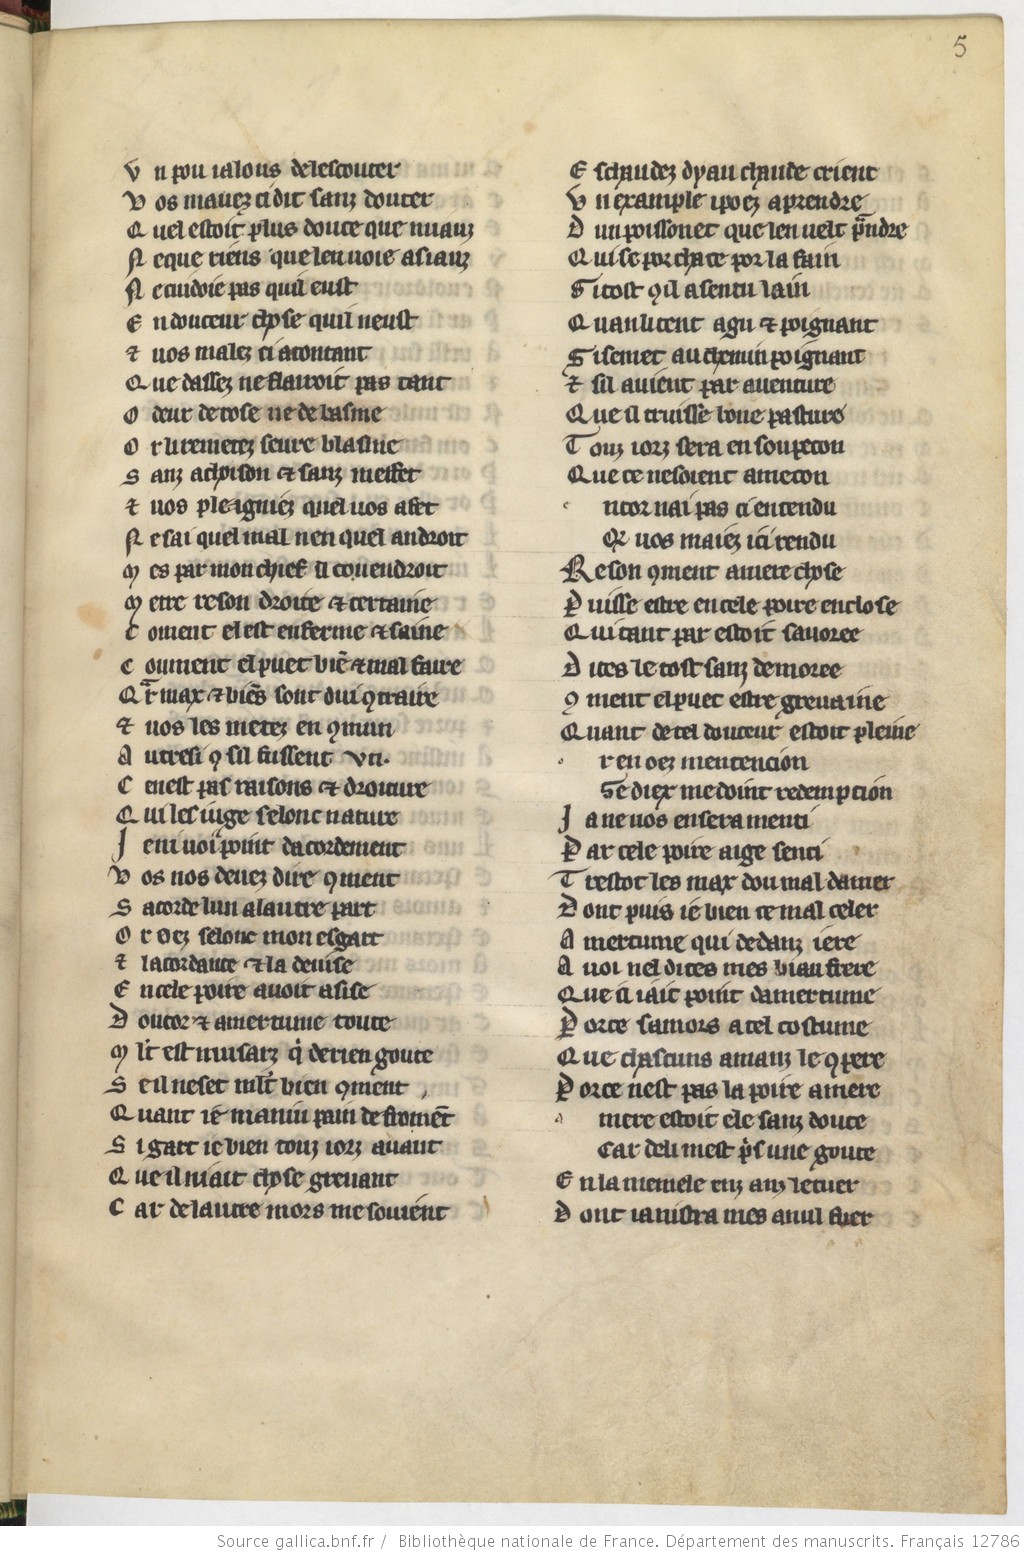 5
V n pou ialous de lescouter
V os mauez ci dit sanz douter
Q uel estoit plus douce que nuianz
N e que riens que len uoie asianz
N e cuidoie pas quil eust
E n douceur chose quil neust
⁊ uos malez ci acontant
Q ue dassez ne flairoit pas tant
O deur de rose ne de basme
O r li remetez seure blasme
S anz achoison ⁊ sanz meffet
⁊ uos pleigniez quel uos a fet
N e sai quel mal nen quel androit
M es par mon chief il couendroit
M etre reson droite ⁊ certaine
C oment el est enferme ⁊ saine
C oument el puet biē ⁊ mal faire
Q r max ⁊ biēs sont dui ꝯtraire
⁊ uos les metez en ꝯmun
A utresi ꝯ sil fussent vn.
C e nest pas raisons ⁊ droiture
Q ui les iuge selonc nature
J e ni uoi point dacordement
V os nos deuez dire ꝯment
S acorde lun a lautre part
O r oez selonc mon esgart
⁊ lacordance ⁊ la deuise
E n cele poire auoit asise
D oucor ⁊ amertume toute
M lt est musarz q̄ de rien goute
S e il ne set mlt bien ꝯment
Q uant iē maniu pain de fromēt
S i gart ie bien touz iorz auant
Q ue il niait chose greuant
C ar de lautre mors me souient
E schaudez dyau chaude crient
V n example i poez aprendre
D un poissonet que len uelt p̄ndre
Q ui se porchace por la fain
S i tost ꝯ il a sentu lain
Q uanlicent agu ⁊ poignant
S i se met au chemin poignant
⁊ sil auient par auenture
Q ue il truisse boue pasture
T ouz iorz sera en soupecon
Q ue ce ne soient amecon
ncor nai pas ci entendu
Qr uos maiez ici rendu
Reson ꝯment amere chose
P uisse estre en cele poire enclose
Q ui tant par estoit sauoree
D ites le tost sanz demoree
ꝯ ment el puet estre greuaine
Quant de tel douceur estoit pleine
r en oez mentencion
Se diex me doint redempcion
J a ne uos en sera menti
P ar cele poire ai ge senti
T restot les max dou mal damer
D ont puis iē bien ce mal celer
A mertume qui dedanz iere
A uoi nel dites mes biau frere
Q ue ci iait point damertume
P orce samors a tel costume
Q ue chascuns amanz le ꝯpere
P orce nest pas la poire amere
mere estoit ele sanz doute
Car de li mest p̄s une goute
E n la memele enz anz le cuer
D ont ia nistra mes a nul fuer
Source gallica.bnf.fr / Bibliothèque nationale de France. Département des manuscrits. Français 12786